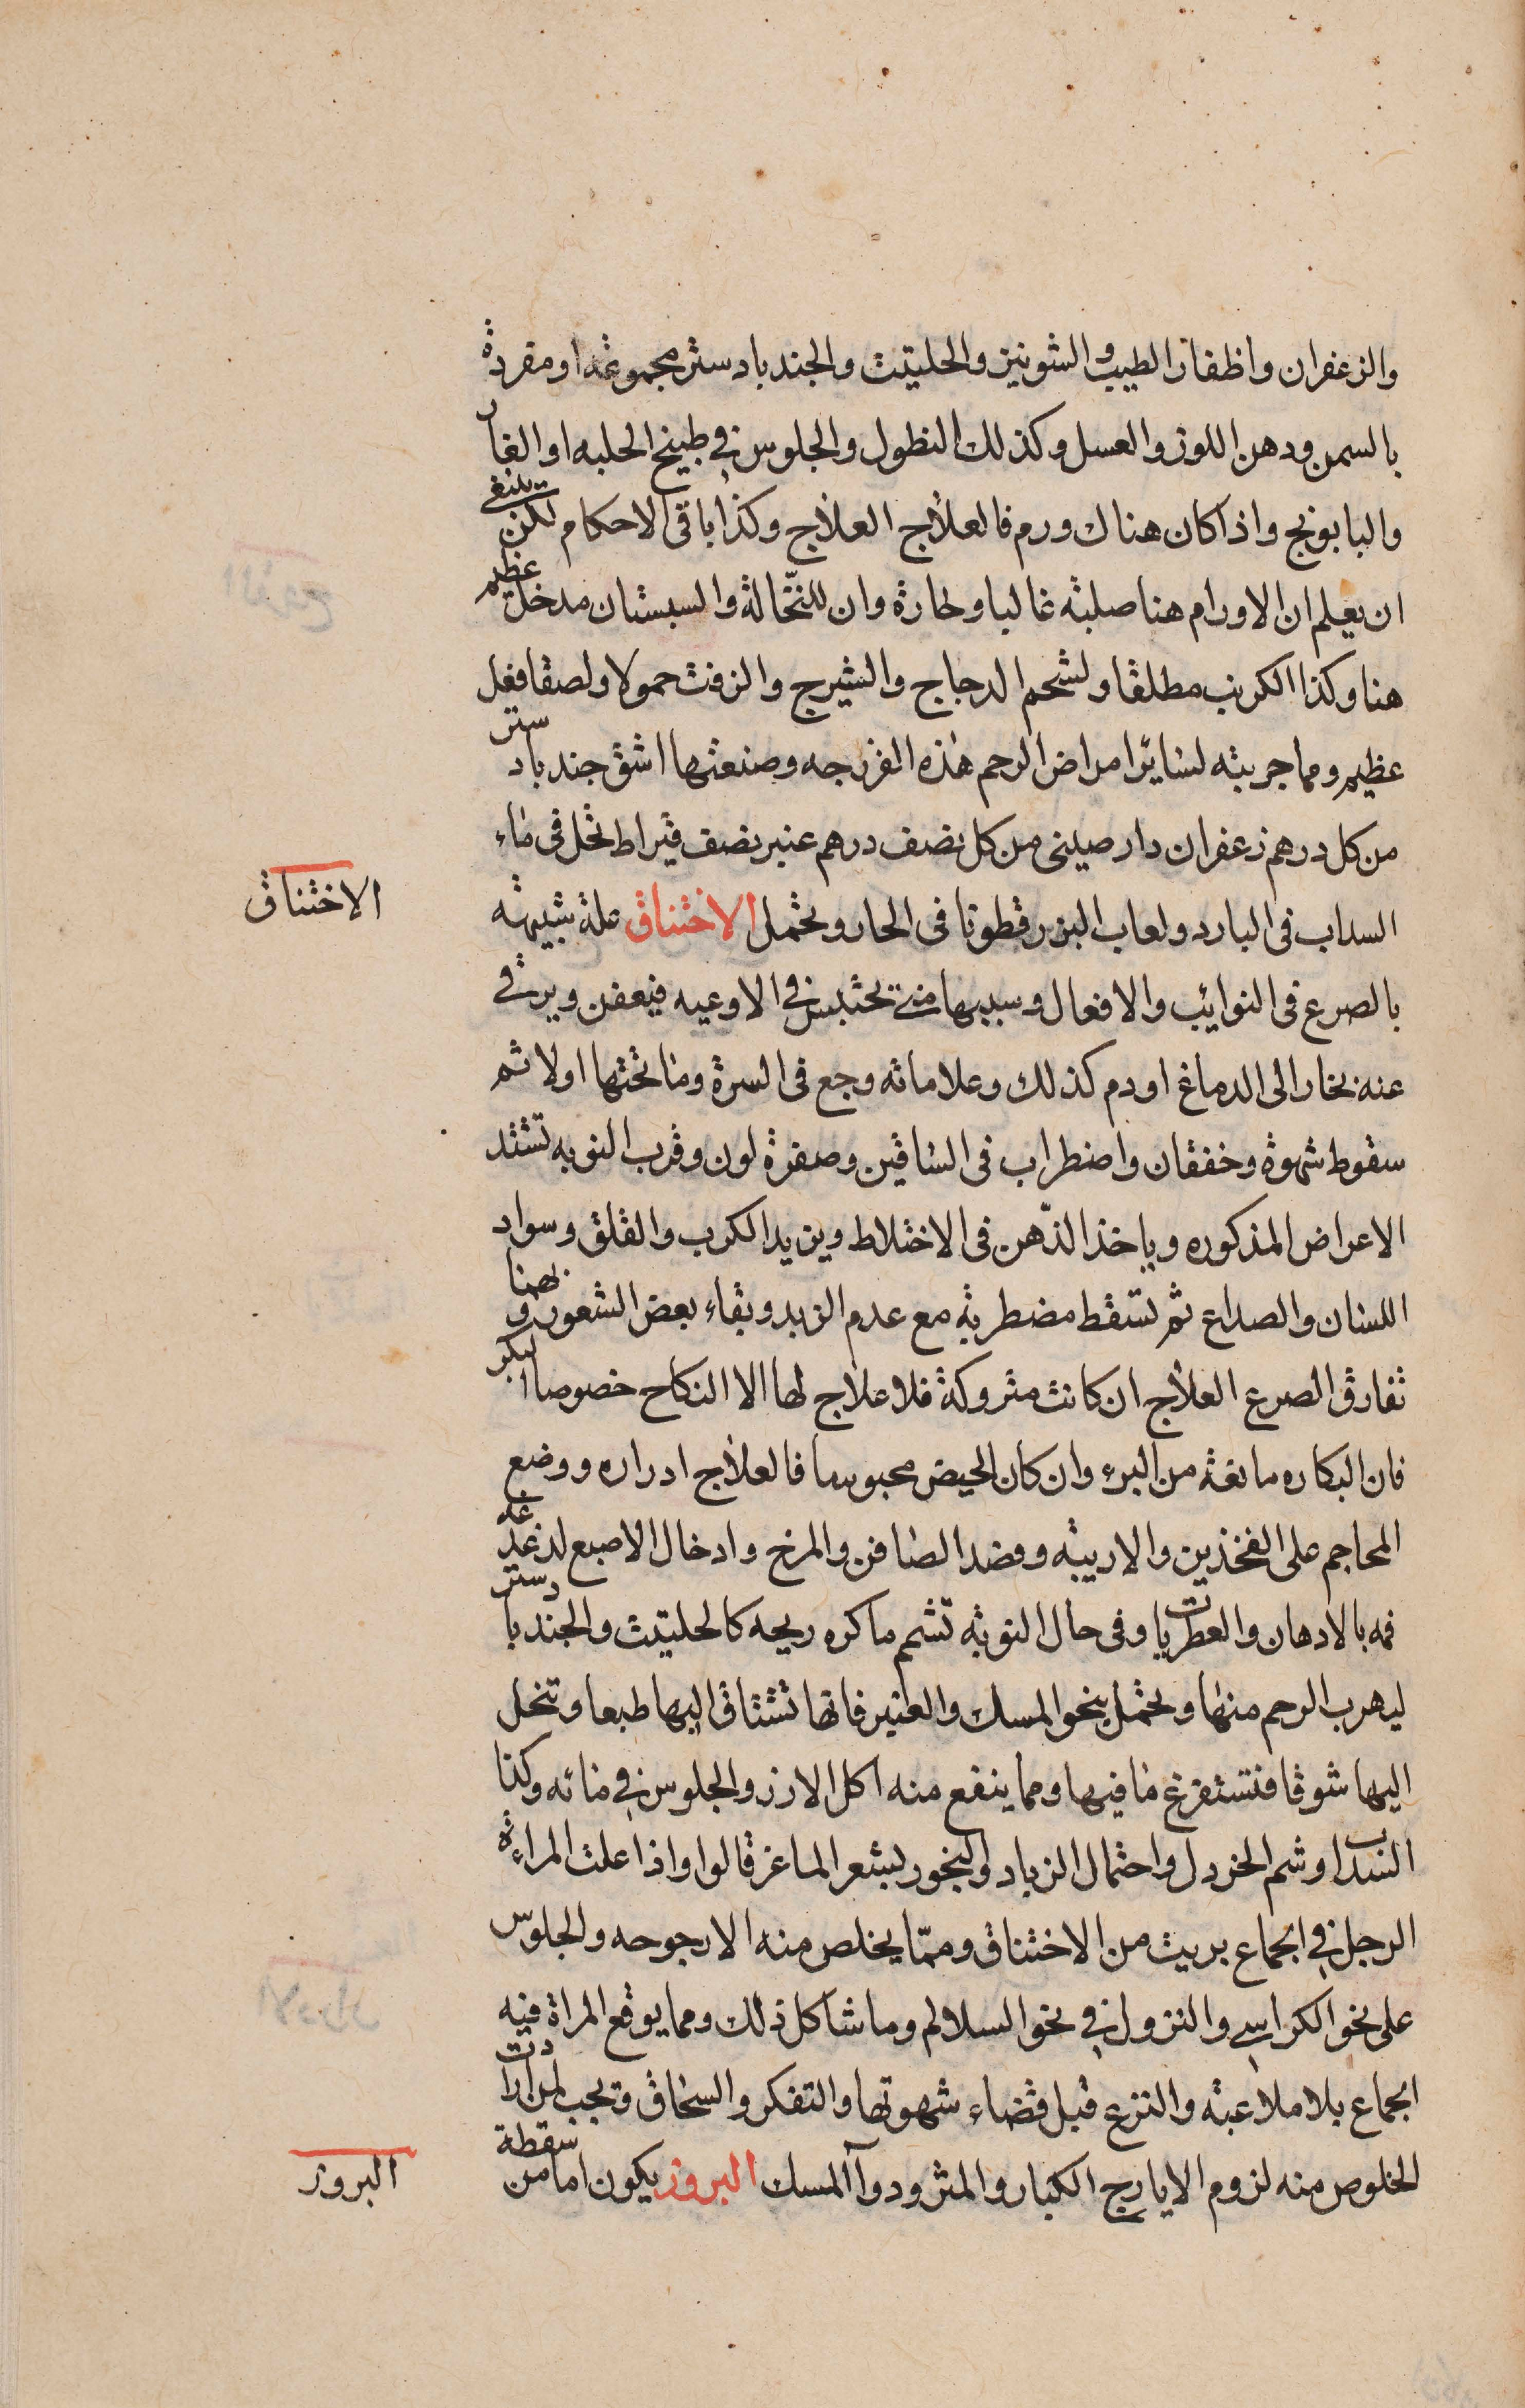 والزعفران واظفار الطيب والشونيز والحلتيت والجندبادستر مجموعة او مفردة
بالسمن ودهن اللوز والعسل وكذلك النطول والجلوس فى طبيخ الحلبه او الغار
والبابونج واذا كان هناك ورم فالعلاج العلاج وكذا باقى الاحكام لكن ينبغى
ان يعلم ان الاورام هنا صلبة غالبا وحارة وان للنخالة والسبستان مدخل عظيم
هنا وكذا الكرنب مطلقا ولشحم الدجاج والشيرج والزفت حمولا ولصقا فعل
عظيم ومما جربته لسائر امراض الرحم هذه الفرزجه وصنعتها اشق جندبادستر
من كل درهم زعفران دارصينى من كل نصف درهم عنبر نصف قيراط تحل فى ماء
السداب فى البارد ولعاب البزرقطونا فى الحار وتحتمل الاختناق علة شبيهة
الاختناق
بالصرع فى النوايب والافعال وسببها منى تحتبس فى الاوعيه فيعفن ويرقى
عنه بخار الى الدماغ او دم كذلك وعلاماته وجع فى السرة وما تحتها اولا ثم
سقوط شهوة وخفقان واضطراب فى الساقين وصفرة لون وقرب النوبه تشتد
الاعراض المذكوره وياخذ الذهن فى الاختلاط ويزيد الكرب والقلق وسواد
اللسان والصداع ثم تسقط مضطربة مع عدم الزبد وبقاء بعض الشعور وبهذا
تفارق الصرع العلاج ان كانت متروكة فلا علاج لها الا النكاح خصوصا البكر
فان البكاره مانعة من البرء وان كان الحيض محبوسا فالعلاج ادراره ووضع
المحاجم على الفخذين والاربية وفصد الصافن والمرخ وادخال الاصبع لدغدغة
فمه بالادهان والعطريات وفى حال النوبة تشم ما كره ريحه كالحلتيت والجندبادستر
ليهرب الرحم منها وتحتمل بنحو المسك والعنبر فانها تشتاق اليها طبعا وتنحل
اليها شوقا فتستفرغ ما فيها ومما ينفع منه اكل الارز والجلوس فى مائه وكذا
السداب وشم الخردل واحتمال الزباد والبخور بشعر الماعز قالوا واذا علت المراءة
الرجل فى الجماع بريت من الاختناق ومما يخلص منه الارجوحه والجلوس
على نحو الكراسى والنزول فى نحو السلالم وما شاكل ذلك ومما يوقع المراة فيه
الجماع بلا ملاعبة والنزع قبل قضاء شهوتها والتفكر والسحاق وتجب لمن ارادت
الخلوص منه لزوم الايارج الكبار والمثرود وآ المسك البروز يكون اما من سقطة
البروز